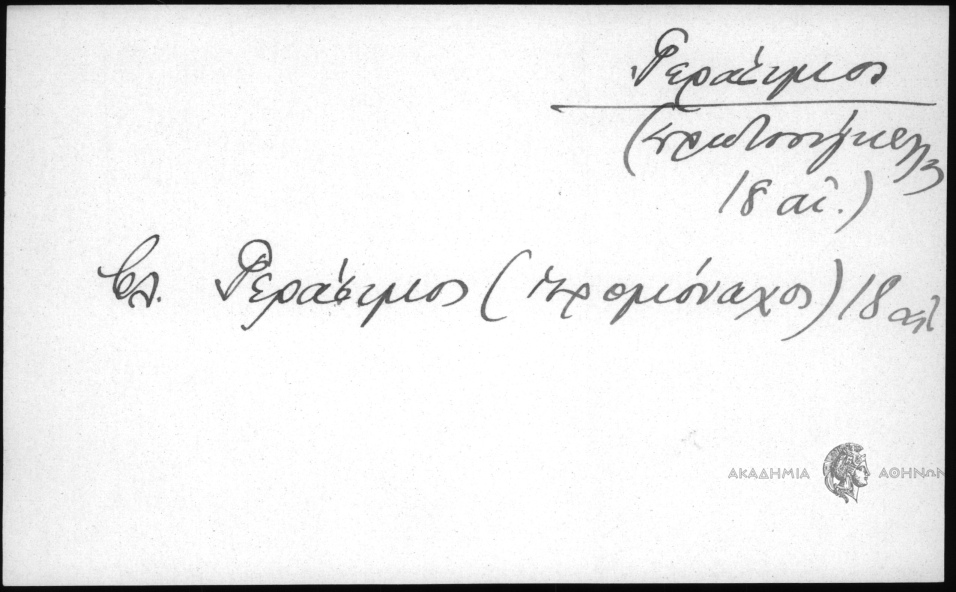 Γεράσιμος
(πρωτοσύγκελλος
18 αἰ.)
βλ. Γεράσιμος (ἱερομόναχος) 18 αἰ
ΑΚΑΔΗΜΙΑ ΑΘΗΝΩΝ